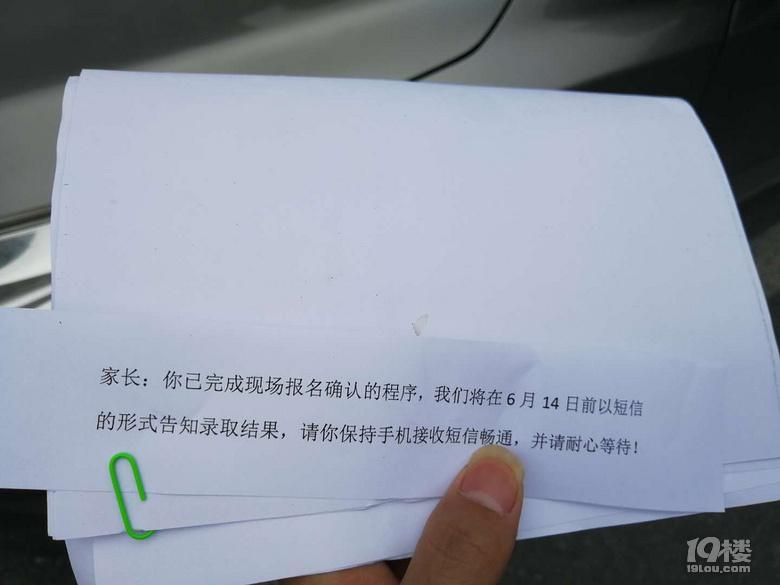 家长：你已完成现场报名确认的程序，我们将在6月14日前以短信
的形式告知录取结果，请你保持手机接收短信畅通，并请耐心等待！
19楼
19lou.com